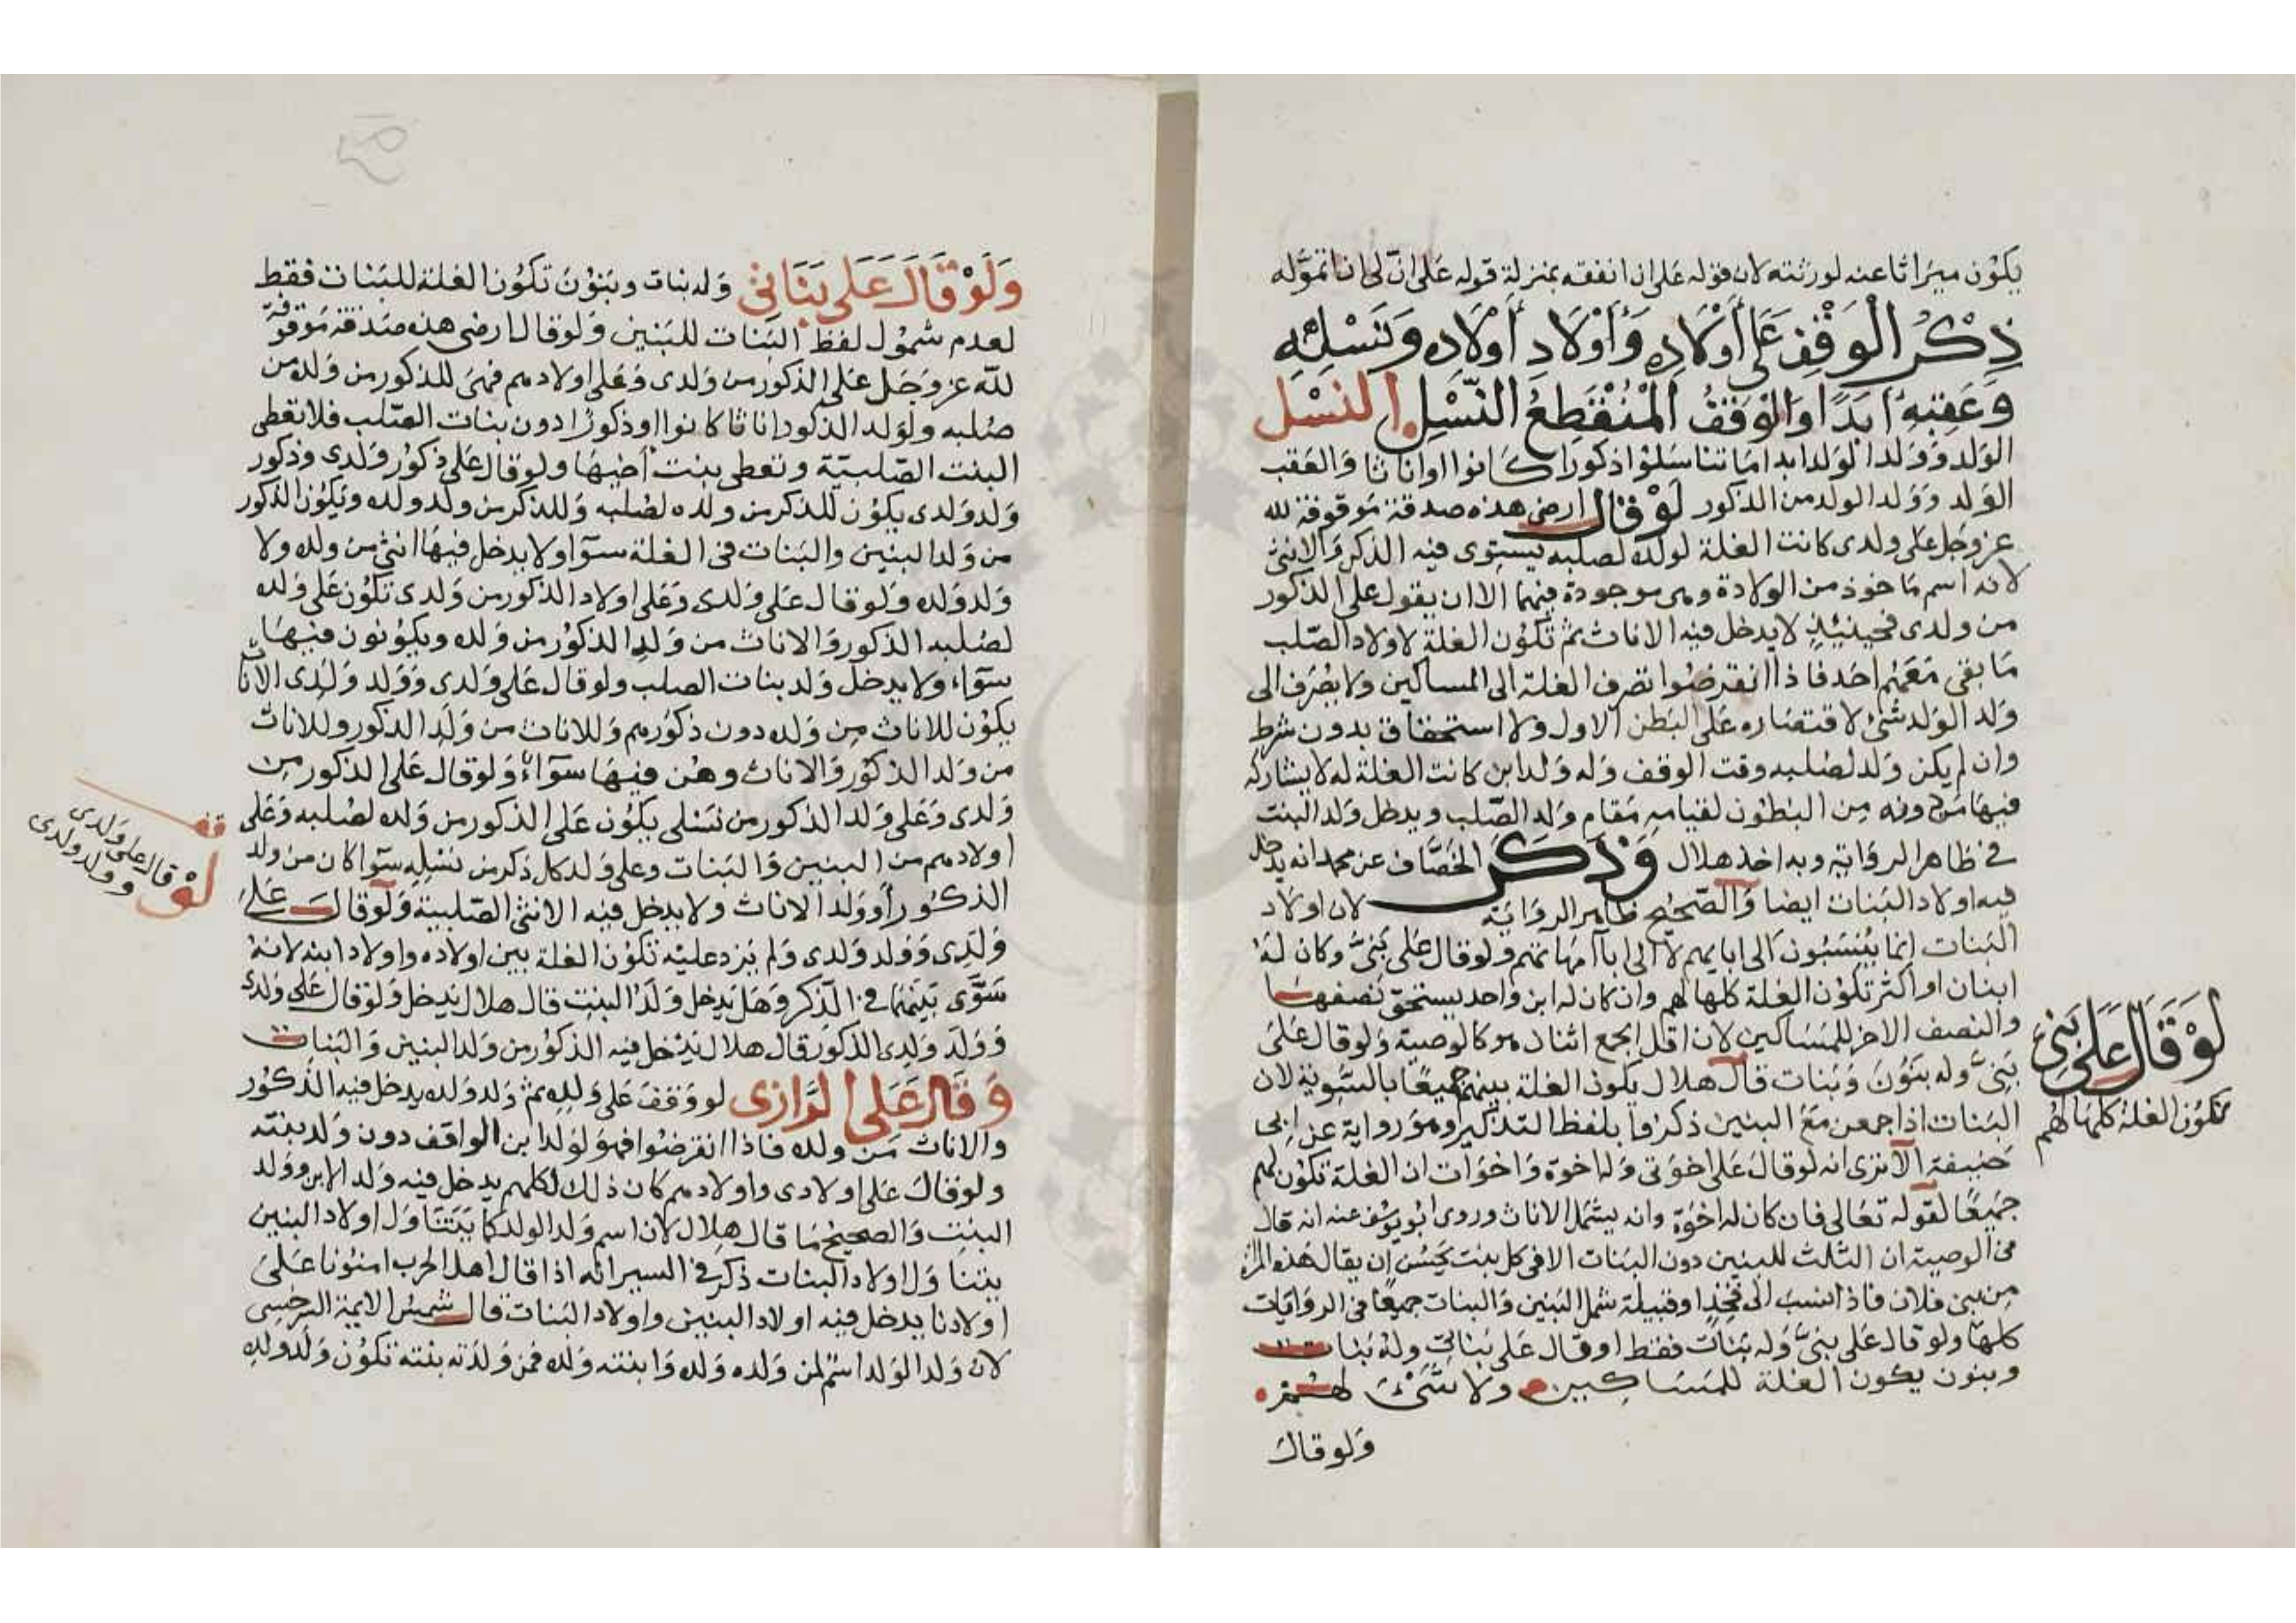 يكون ميراثا عنه لورثته لان قوله على ان انفقه بمنزلة قوله على ان لى ان اتموله
ذِكْرُ الْوَقْفِ عَلى أوْلَادِه وَأوْلَادِ أوْلَادِه وَنَسْلِهِ
وَعَقِبِهِ اَبَدًا وَالْوَقْفُ الْمُنْقَطِعُ النَّسْلِ النسْل
الولد وولد الولد ابدا ما تناسلوا ذكورا كانوا او اناثا والعقب
الولد وولد الولد من الذكور لَوْ قال ارضى هذه صدقة موقوفة لله
عز وجل على ولدى كانت الغلة لولده لصلبه يستوى فيه الذكر والانثى
لانه اسم ماخوذ من الولادة وهى موجودة فيهما الا ان يقول على الذكور
من ولدى فحينئذ لا يدخل فيه الاناث ثم تكون الغلة لاولاد الصلب
ما بقى منهم احد فاذا انقرضوا تصرف الغلة الى المساكين ولا يصرف الى
ولد الولد شئ لاقتصاره على البطن الاول ولا استحقاق بدون شرط
وان لم يكن ولد لصلبه وقت الوقف وله ولد ابن كانت الغلة له لا يشاركه
فيها من دونه من البطون لقيامه مقام ولد الصلب ويدخل ولد البنت
فى ظاهر الرواية وبه اخذ هلال وَذَكَرَ الخصاف عن محمد انه يدخل
فيه اولاد البنات ايضا والصحيح ظاهر الرواية لان اولاد
البنات انما ينسبون الى ابايهم لا الى اباء امهاتهم ولو قال على بنىّ وكان له
ابنان او اكثر تكون الغلة كلها لهم وان كان له ابن واحد يستحق نصفها
والنصف الاخر للمساكين لان اقل الجمع اثنان هو كالوصية ولو قال على
بنىّ وله بنون وبنات قال هلال يكون الغلة بينهم جميعا بالسوية لان
البنات اذا جمعن مع البنين ذكروا بلفظ التذكير وهو رواية عن ابى
حنيفة الا ترى انه لو قال على اخوتى وله اخوة واخوات ان الغلة تكون لهم
جميعا لقوله تعالى فان كان له اخوة وانه يشمل الاناث وروى ابو يوسف عنه انه قال
فى الوصية ان الثلث للبنين دون البنات الا فى كل بنت يحسن ان يقال هذه المراة
من بنى فلان فاذا انتسب الى فخذ او قبيلة شمل البنين والبنات جميعا فى الروايات
كلها ولو قال على بنىّ وله بنات فقط او قال على بناتى وله بنات
وبنون يكون الغلة للمساكين ولا شئ لهم
ولو قال
لَوْ قَالَ عَلى بَنِىَّ
تكون الغلة كلها لهم
وَلَوْ قَالَ عَلى بَنَاتى وله بنات وبنون تكون الغلة للبنات فقط
لعدم شمول لفظ البنات للبنين ولو قال ارضى هذه صدقة موقوفة
لله عز وجل على الذكور من ولدى وعلى اولادهم فهى للذكور من ولده من
صلبه ولولد الذكور اناثا كانوا او ذكورا دون بنات الصلب فلا تعطى
البنت الصلبية وتعطى بنت اخيها ولو قال على ذكور ولدى وذكور
ولد ولدى يكون للذكر من ولده لصلبه وللذكر من ولد ولده ويكون الذكور
من ولد البنين والبنات فى الغلة سوآ ولا يدخل فيها انثى من ولده ولا
ولد ولده ولو قال على ولدى وعلى اولاد الذكور من ولدى تكون على ولده
لصلبه الذكور والاناث من ولد الذكور من ولده ويكونون فيها
سوآء ولا يدخل ولد بنات الصلب ولو قال على ولدى وولد ولدى الاناث
يكون للاناث من ولده دون ذكورهم وللاناث من ولد الذكور وللاناث
من ولد الذكور والاناث وهن فيها سوآء ولو قال على الذكور من
ولدى وعلى ولد الذكور من نسلى يكون على الذكور من ولده لصلبه وعلى
اولادهم من البنين والبنات وعلى ولد كل ذكر من نسله سوآ كان من ولد
الذكور أو ولد الاناث ولا يدخل فيه الانثى الصلبية ولو قال على
ولدى وولد ولدى ولم يزد عليه تكون الغلة بين اولاده واولاد ابنه لانه
سوّى بينهما فى الذكر وهل يدخل ولد البنت قال هلال يدخل ولو قال على ولدى
وولد ولدى الذكور قال هلال يدخل فيه الذكور من ولد البنين والبنات
وَقَالَ عَلى الرَّازى لو وقف على ولده ثم ولد ولده يدخل فيه الذكور
والاناث من ولده فاذا انقرضوا فهو لولد ابن الواقف دون ولد بنته
ولو قال على اولادى واولادهم كان ذلك لكلهم يدخل فيه ولد الابن وولد
البنت والصحيح ما قال هلال لان اسم ولد الولد كما يتناول اولاد البنين
يتناول اولاد البنات ذكر فى السير انه اذا قال اهل الحرب امنونا على
اولادنا يدخل فيه اولاد البنين واولاد البنات قال شمس الايمة السرخسى
لان ولد الولد اسم لمن ولده ولده وابنته ولده فمن ولدته بنته تكون ولد ولده
قف
لَوْ قال على ولدى
وولد ولدى